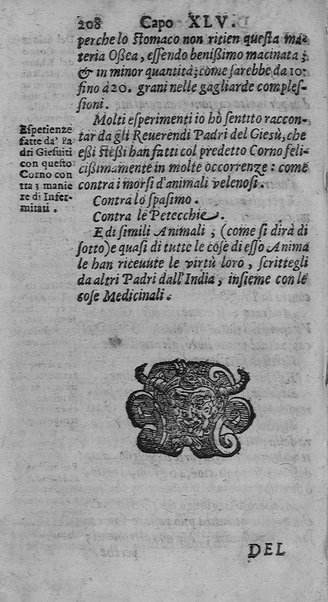 208 Capo XLV.
perche lo stomaco non ritien questa ma
teria Ossea, essendo benissimo macinata;
& in minor quantità; come sarebbe da 10:
fino a 20. grani nelle gagliarde comples-
sioni.
Molti esperimenti io hò sentito raccon-
tar da gli Reuerendi Padri del Giesù, che
essi stessi han fatti col predetto Corno feli-
cissimamente in molte occorrenze: come
contra i morsi d'animali velenosi.
Contra lo spasimo.
Contra le Petecchie.
E di simili Animali, (come si dirà di
sotto) e quasi di tutte le cose di esso Anima
le han riceuute le virtù loro, scrittegli
da altri Padri dall'India, insieme con le
cose Medicinali.
Esperienze
fatte da' Pa
dri Giesuiti
con questo
Corno con
tra 3 manie
re di Infer-
mitati.
DEL